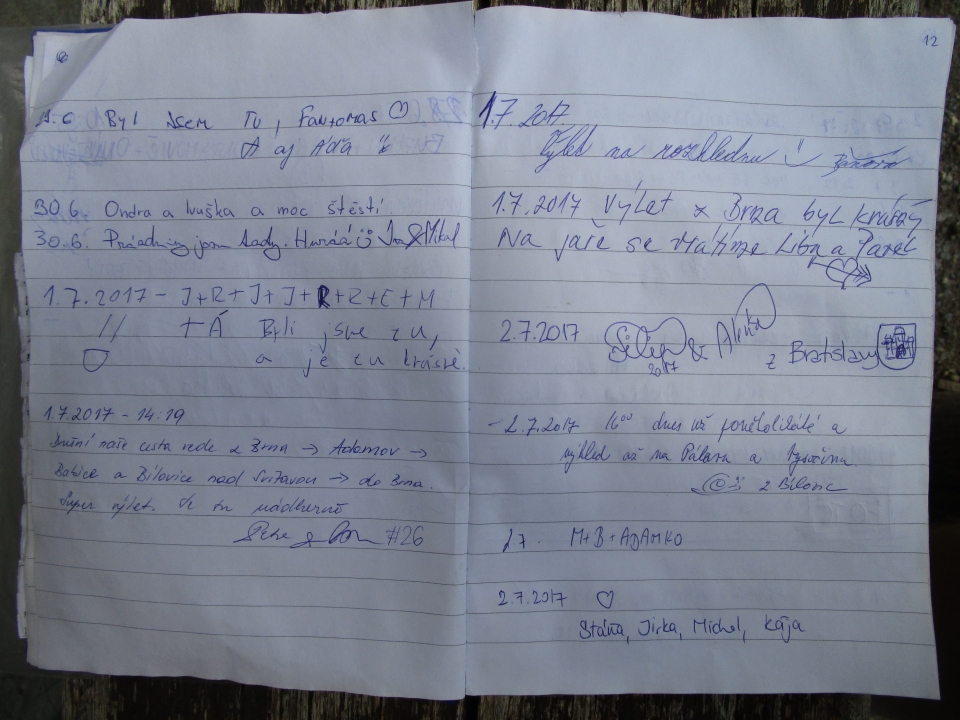 12
Byl jsem tu, Fantomas ♡
A aj Áďa
30.6. Ondra a Ivuška a moc štěstí.
30.6. Prázdniny jsou tady. Huráá
1.7.2017 - J+R+J+J+R+R+E+M
+Á Byli jsme tu,
a je tu krásně.
1.7.2017 - 14:19
Dnešní naše cesta vede z Brna → Adamov →
Babice a Bílovice nad Svitavou → do Brna.
Super výlet. Je tu nádherně
#26
1.7.2017
Výlet na rozhlednu
1.7.2017 Výlet z Brna byl krásný
Na jaře se vrátíme Liba a Pavel
2.7.2017 Filip & Alinka
2017
z Bratislavy
- 2.7.2017 16⁰⁰ dnes už poněkolikáté a
výhled až na Pálavu a Vysočinu.
z Bílovic
2.7. M+B+ADAMKO
2.7.2017 ♡
Stáňa, Jirka, Michal, Kája